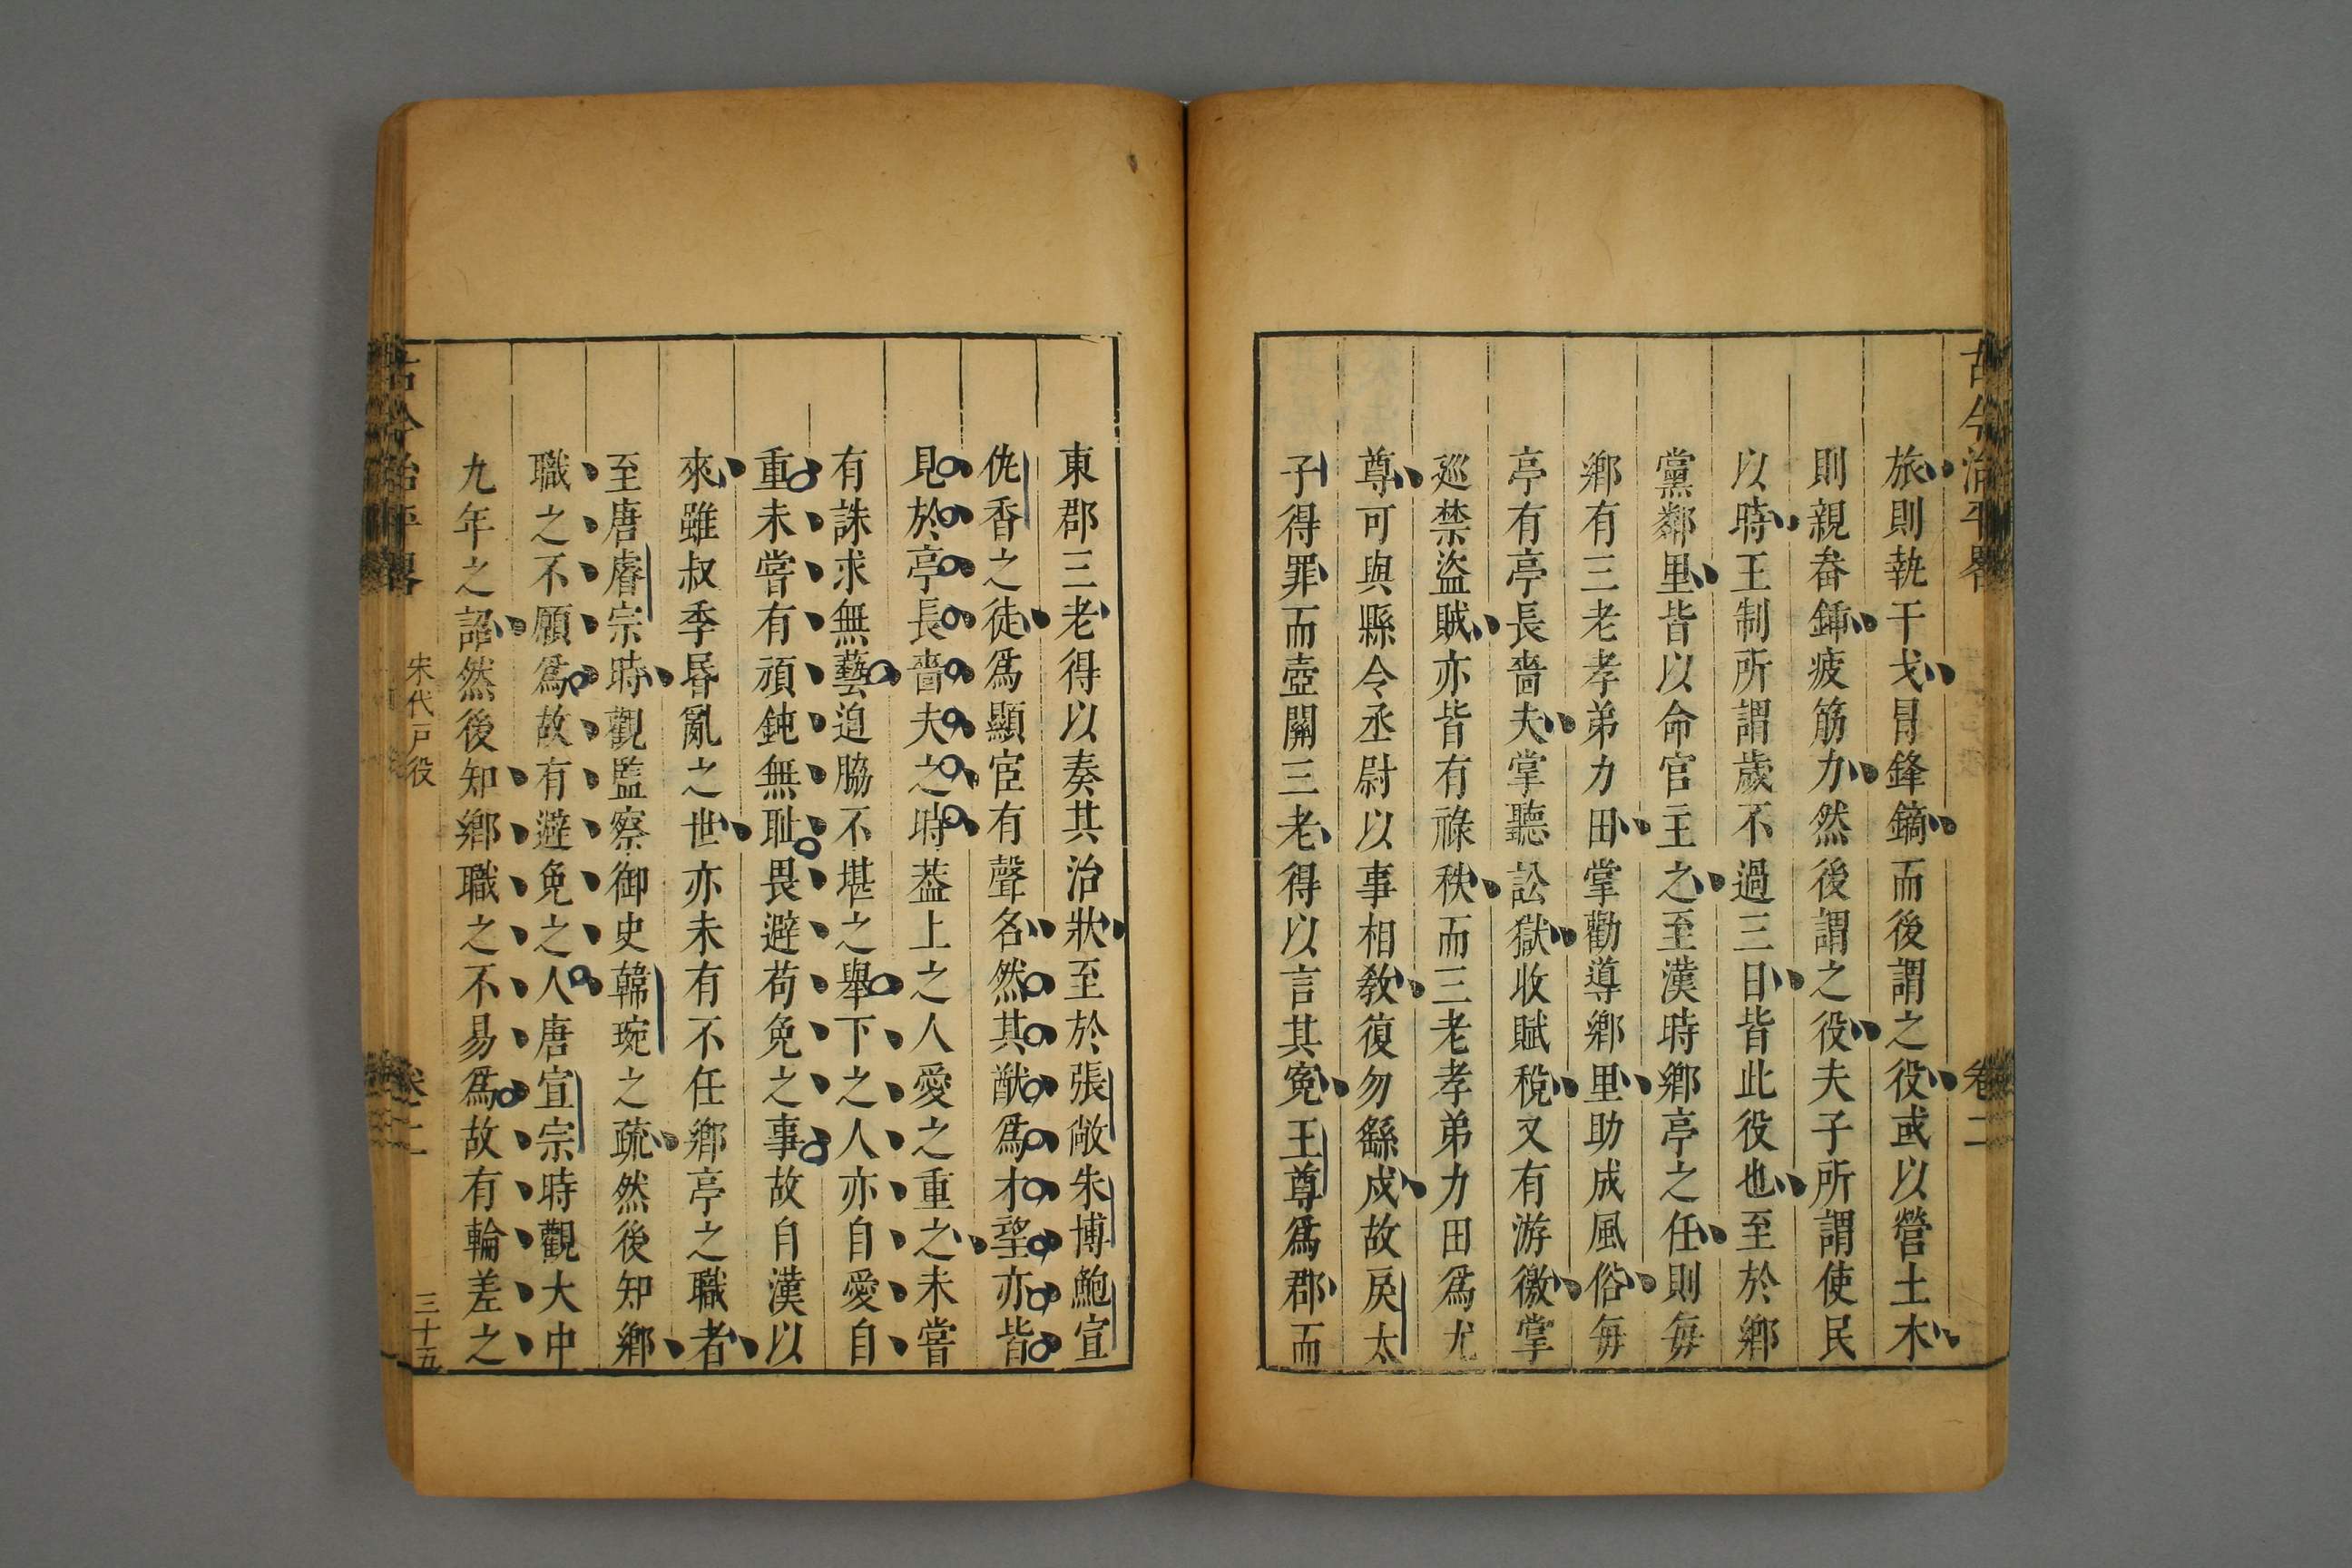 古今治平畧
卷二
旅則執干戈冒鋒鏑而後謂之役或以營土木
則親畚鍤疲筋力然後謂之役夫子所謂使民
以時王制所謂歲不過三日皆此役也至於鄉
黨鄰里皆以命官主之至漢時鄉亭之任則每
鄉有三老孝弟力田掌勸導鄉里助成風俗每
亭有亭長嗇夫掌聽訟獄收賦稅又有游徼掌
廵禁盜賊亦皆有祿秩而三老孝弟力田爲尤
尊可與縣令丞尉以事相教復勿繇戍故戾太
子得罪而壺關三老得以言其寃王尊爲郡而
東郡三老得以奏其治狀至於張敞朱博鮑宣
仇香之徒爲顯宦有聲名然其猷爲才望亦皆
見於亭長嗇夫之時葢上之人愛之重之未嘗
有誅求無藝迫脇不堪之舉下之人亦自愛自
重未嘗有頑鈍無耻畏避苟免之事故自漢以
來雖叔季昬亂之世亦未有不任鄉亭之職者
至唐睿宗時觀監察御史韓琬之疏然後知鄉
職之不願爲故有避免之人唐宣宗時觀大中
九年之詔然後知鄉職之不易爲故有輪差之
古今治平畧
宋代戸役
卷二
三十五